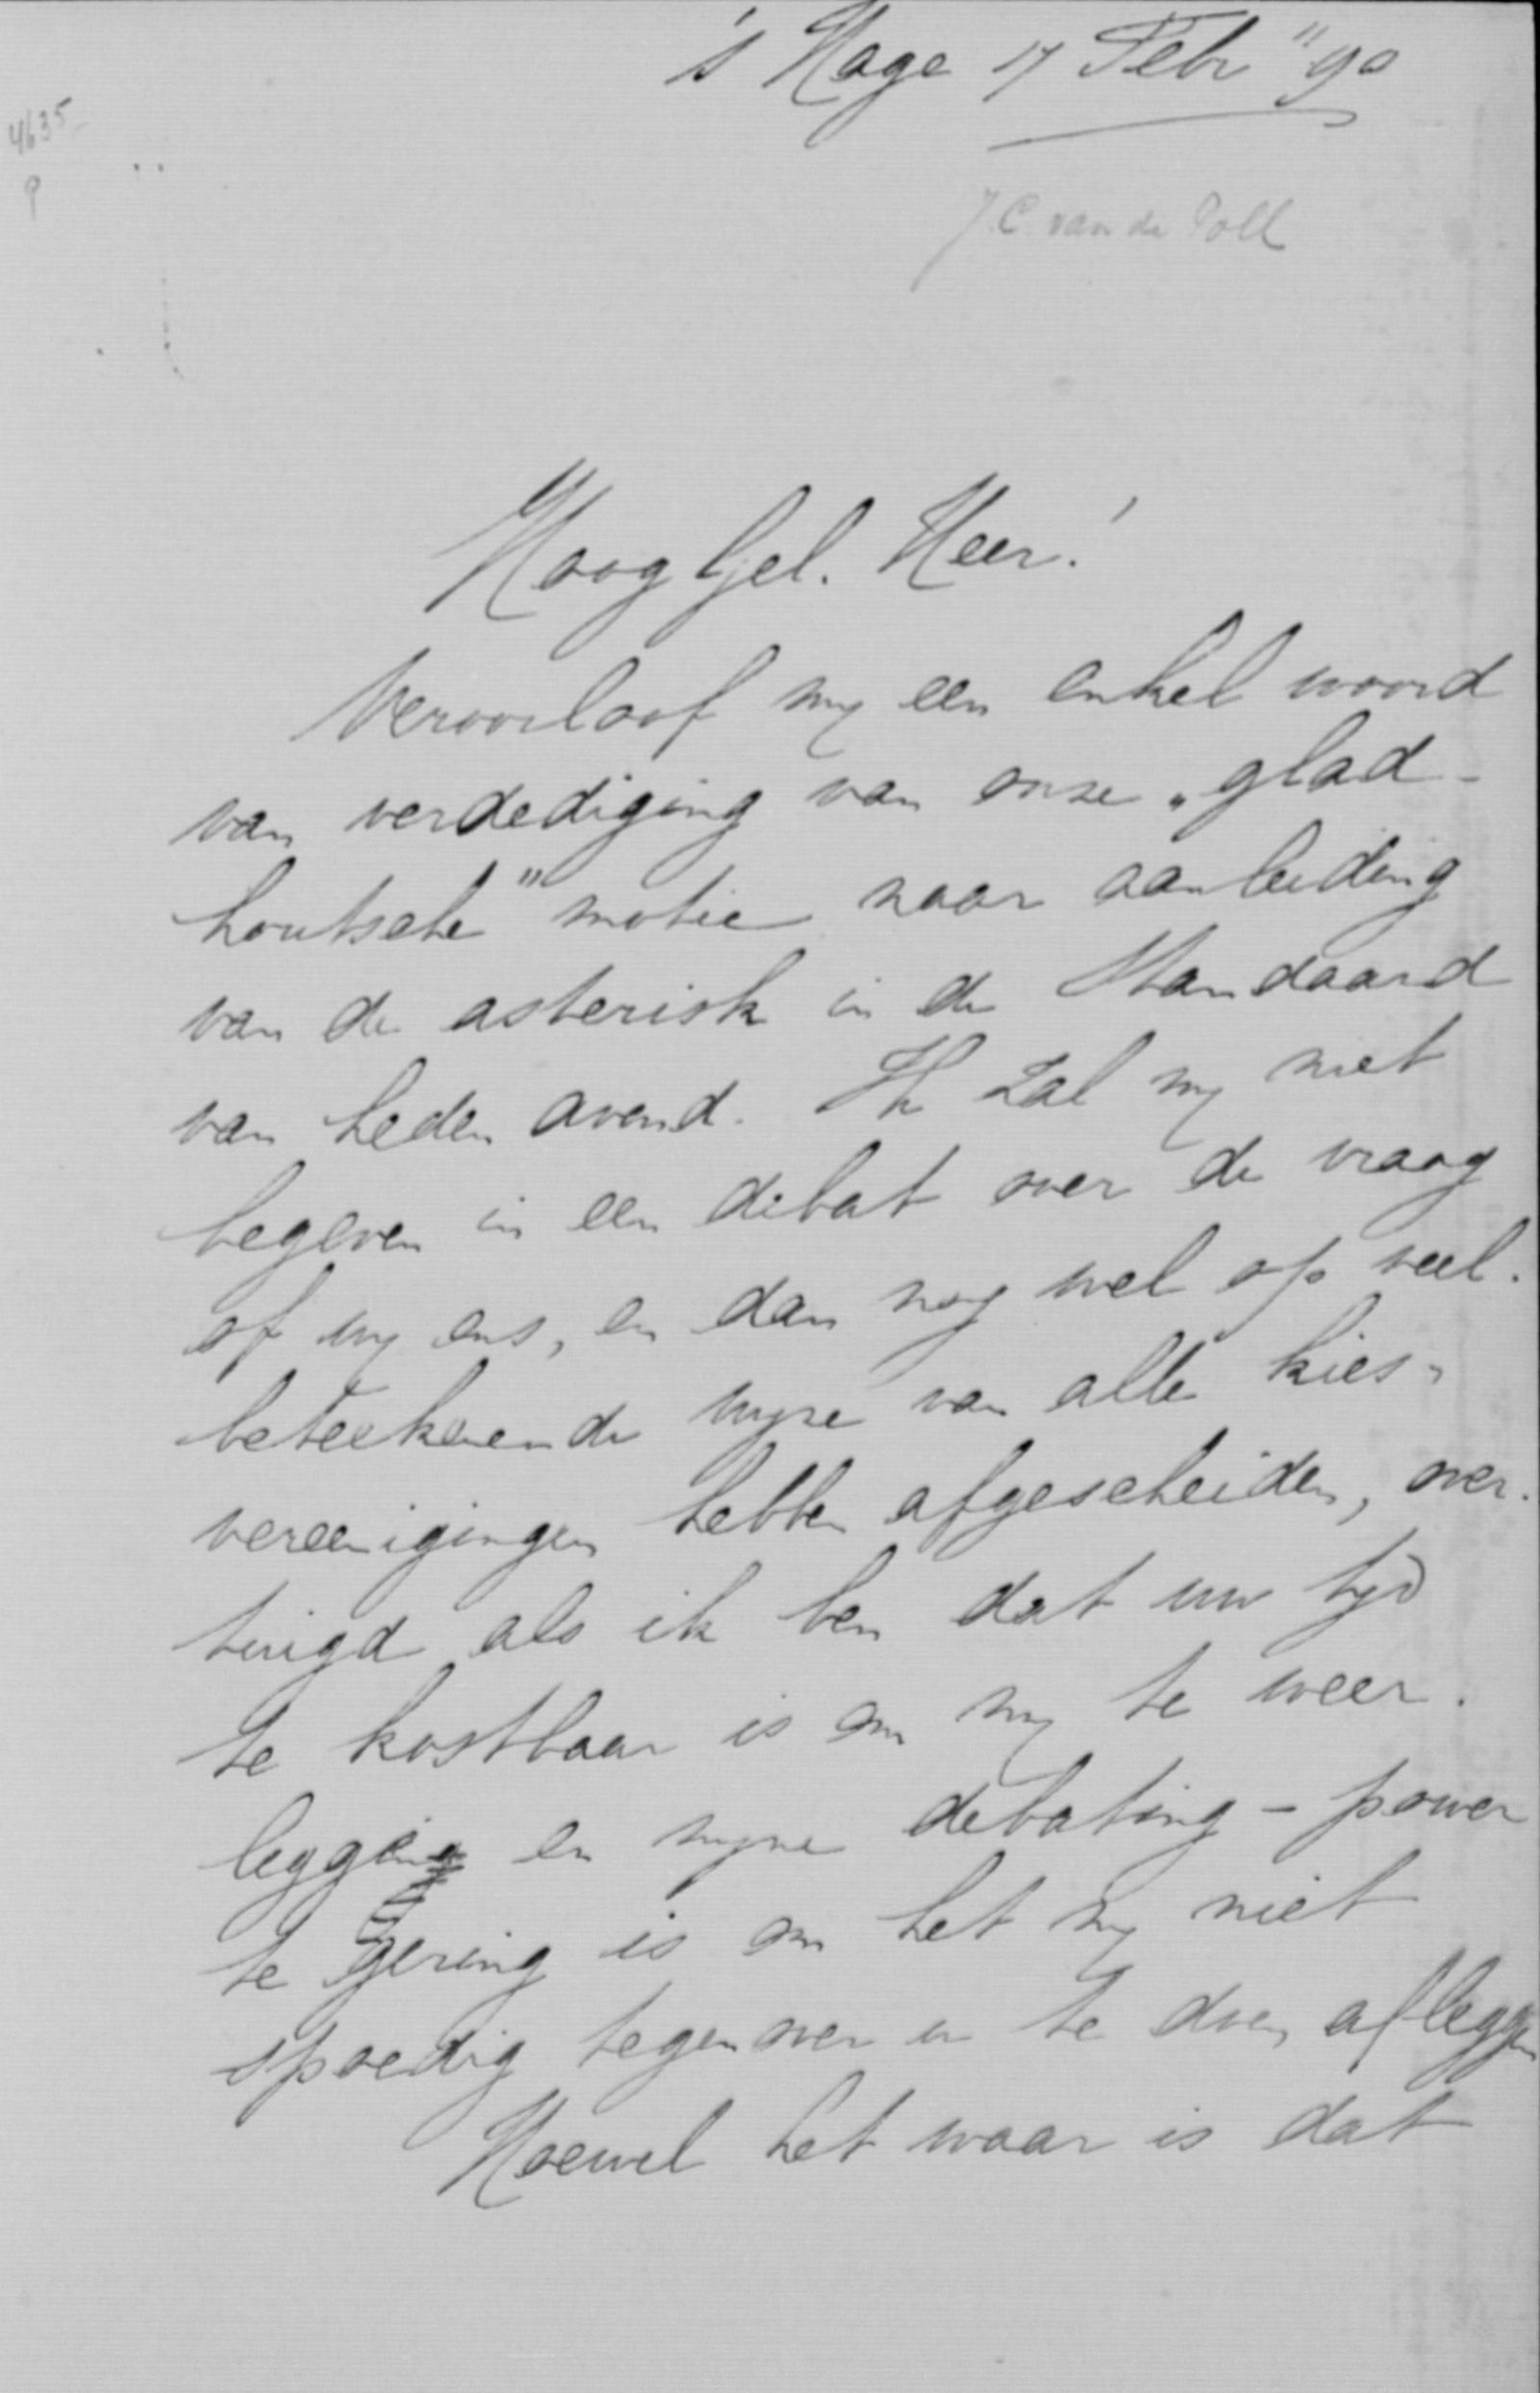 's Hage 17 Febr "90
4635
P
J.C. van de Poll
Hoog Gel. Heer!
Veroorloof my een enkel woord
van verdediging van onze „glad-
houtsche" motie naar aanleiding
van de asterisk in de Standaard
van heden avond. Ik zal my niet
begeven in een debat over de vraag
of wy ons, en dan nog wel op veel-
beteekenende wyze van alle kies-
vereenigingen hebben afgescheiden, over-
tuigd als ik ben dat uw tyd
te kostbaar is om my te weer-
leggen en myne debating-power
te gering is om het my niet
spoedig tegenover u te doen afleggen
Hoewel het waar is dat